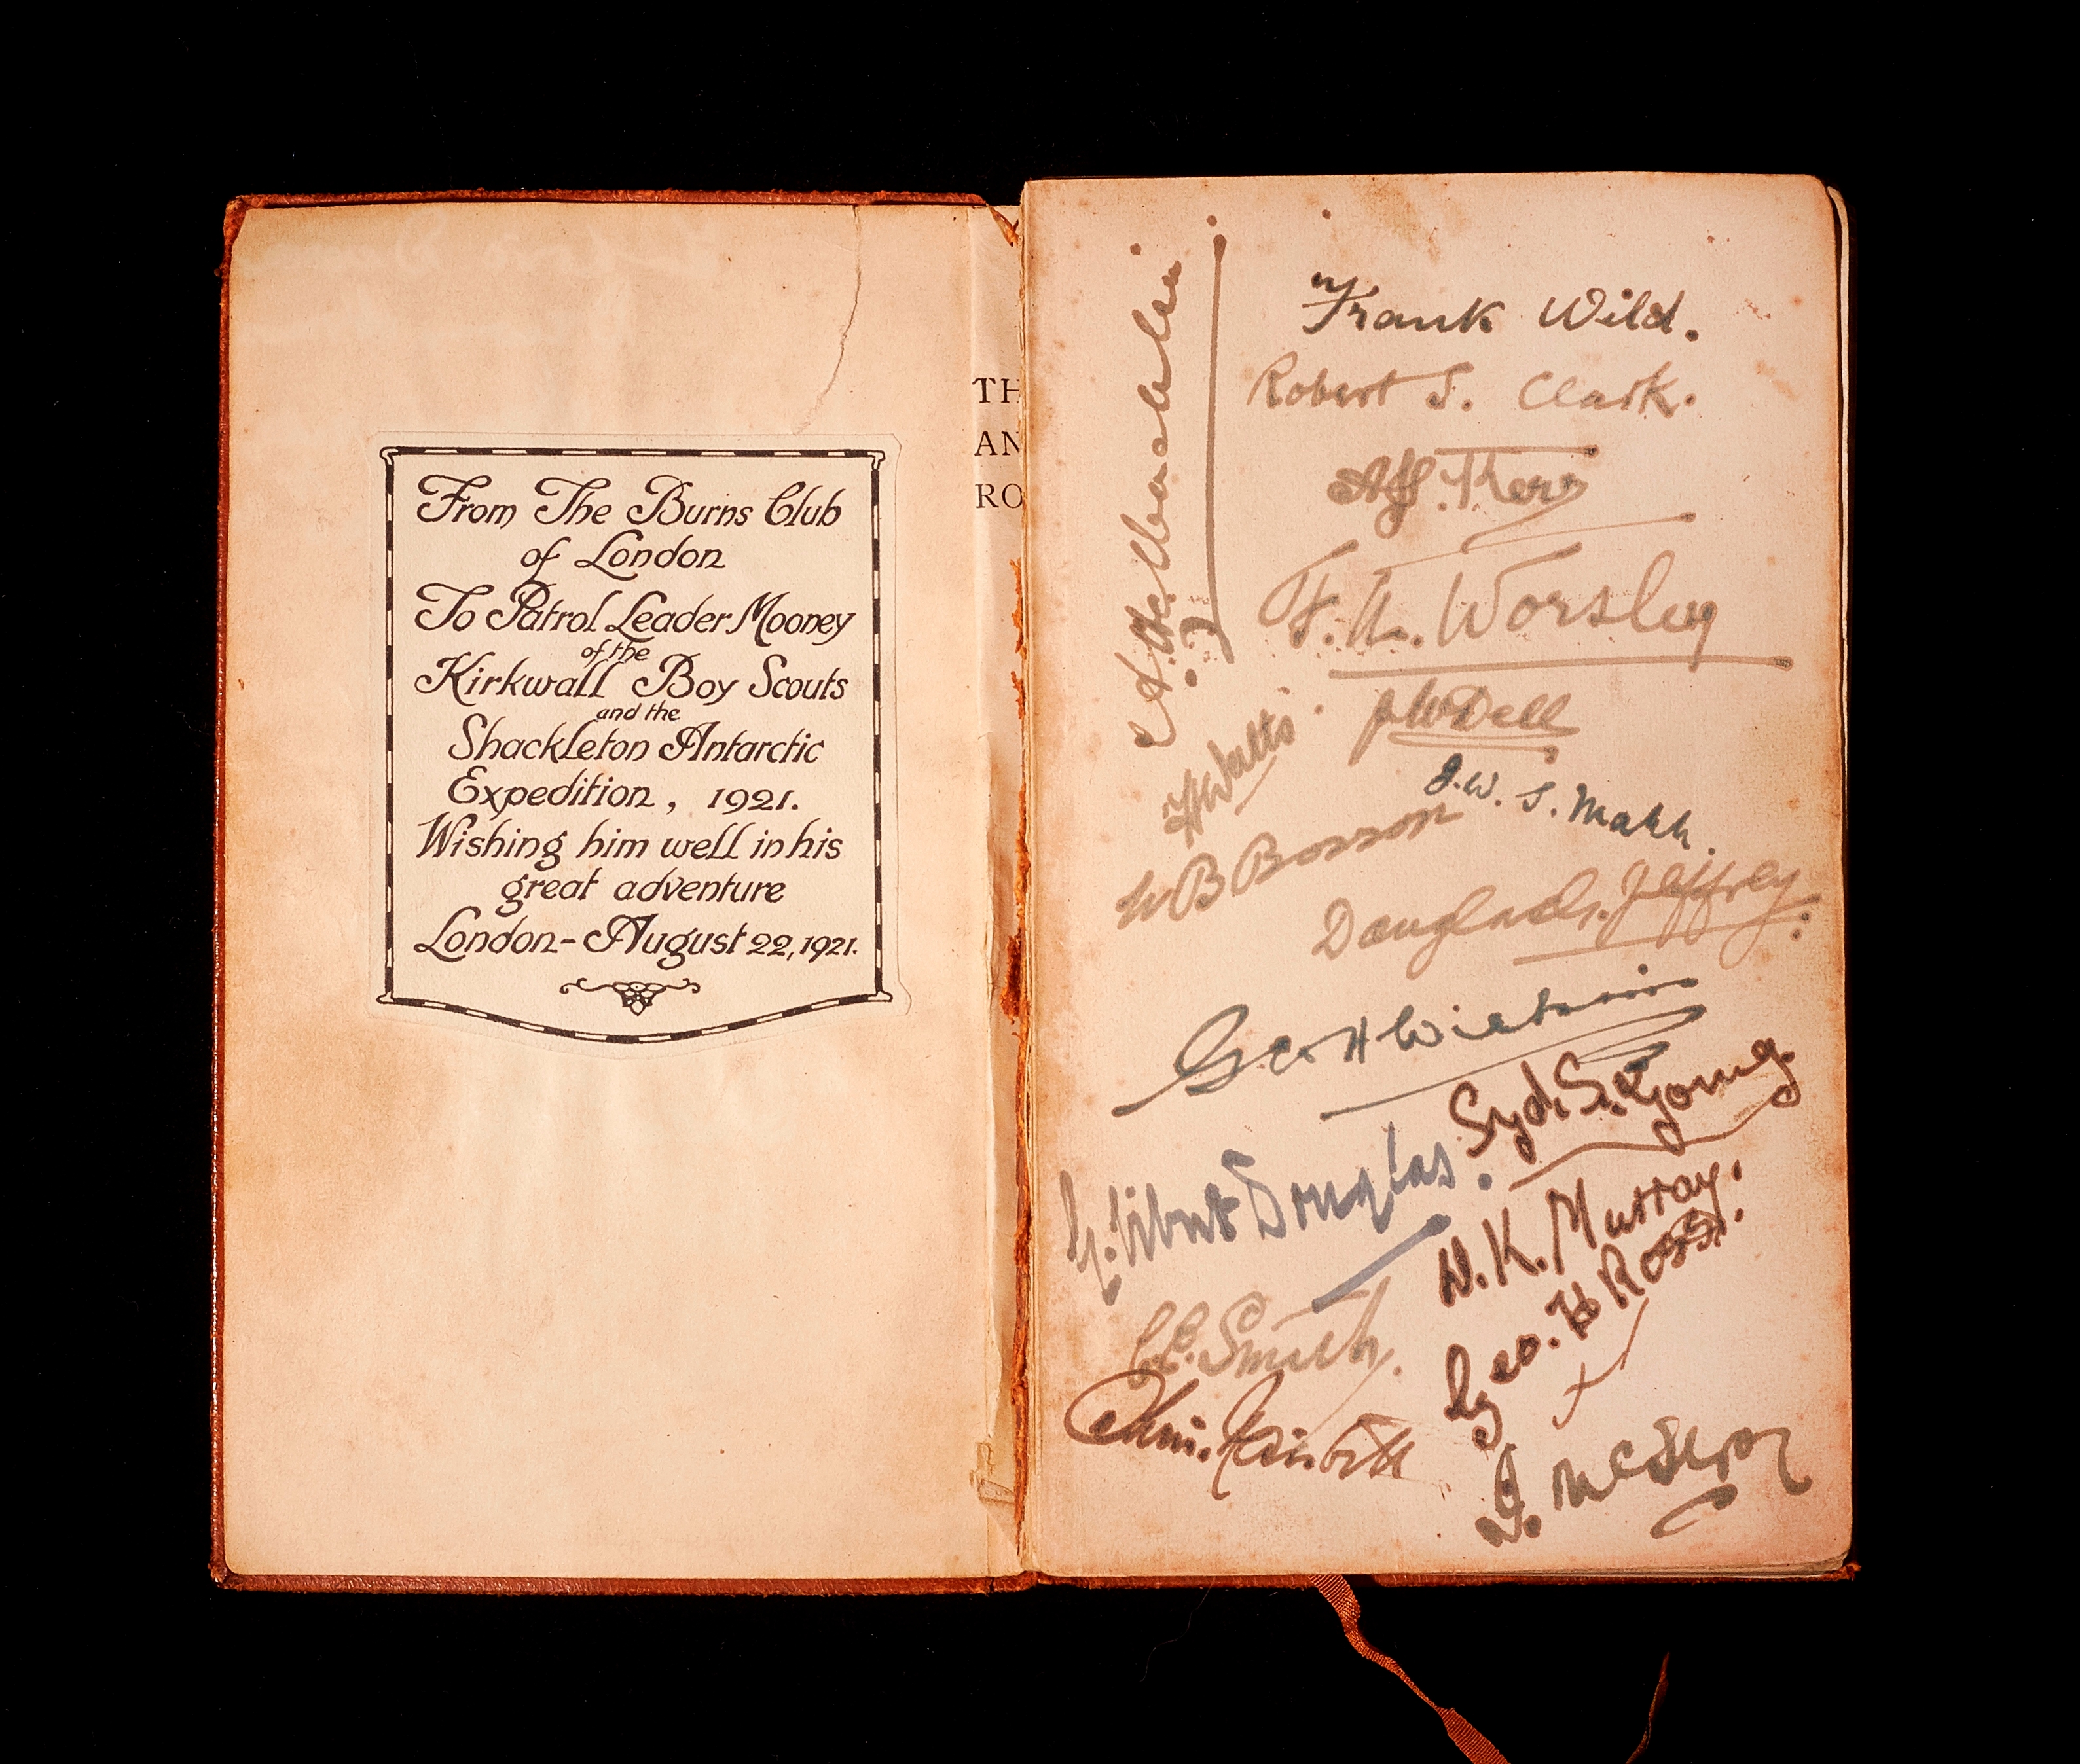 From The Burns Club
of London
To Patrol Leader Mooney
of the
Kirkwall Boy Scouts
and the
Shackleton Antarctic
Expedition, 1921.
Wishing him well in his
great adventure
London - August 22, 1921.
TH
AN
RO
Frank Wild.
Robert S. Clark.
A.J. Kerr
F.A. Worsley
JW Dell
H Watts
J.W.S. Marr.
Jeffrey.
Geo H Wilkins
Syd. S. Young.
G. Vibert Douglas.
W.K. Murray.
Geo. H Ross.
C.E. Smith.